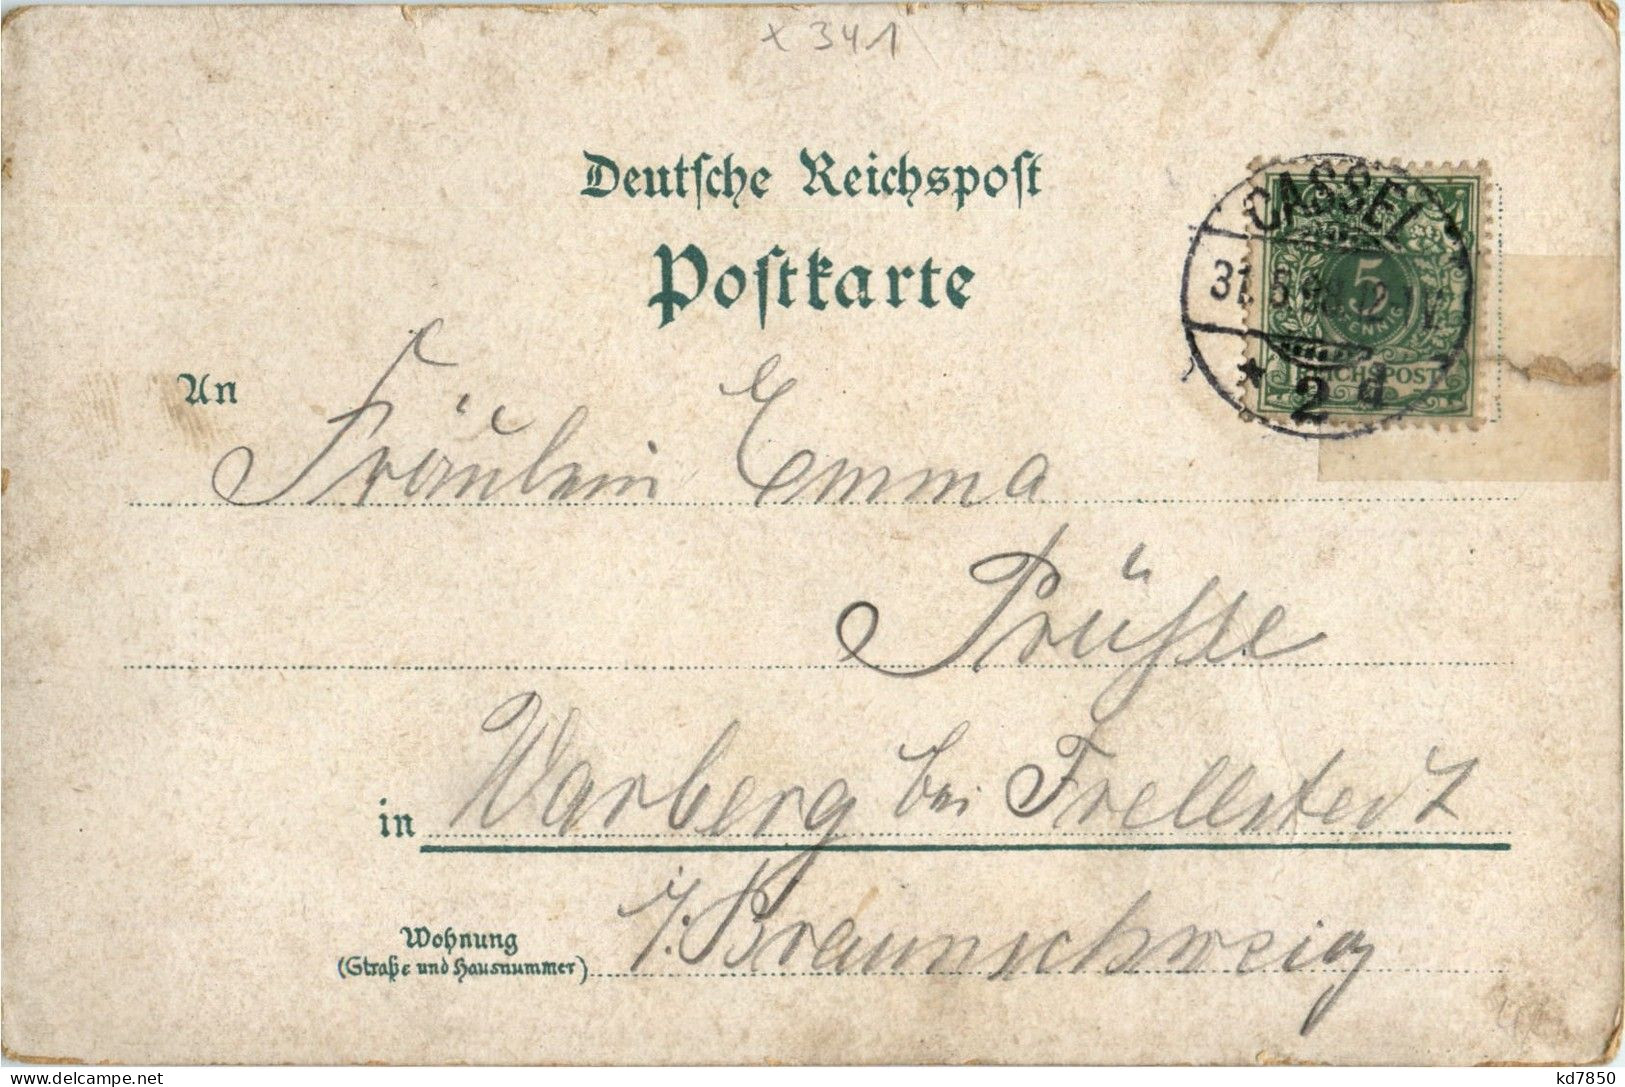 x 341
Deutsche Reichspost
Postkarte
CASSEL
31.5.98.12-1 V
* 2 d
5
PFENNIG
REICHSPOST
An Fräulein Emma
Prüsse
in Warberg bei Frellstedt
i/: Braunschweig
Wohnung
(Straße und Hausnummer)
delcampe.net
kd7850